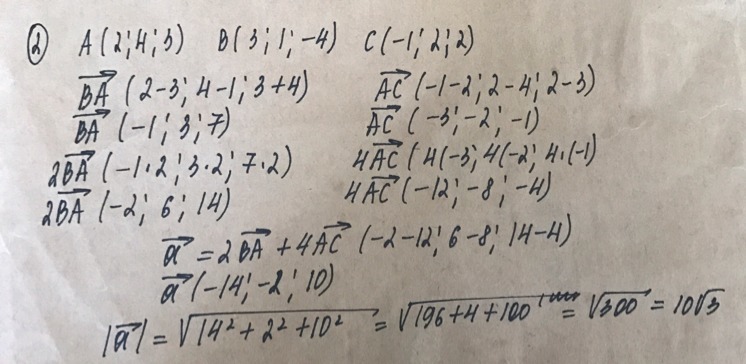 ② A(2;4;3) B(3;1;-4) C(-1;2;2)
BA⃗ (2-3; 4-1; 3+4) AC⃗ (-1-2; 2-4; 2-3)
BA⃗ (-1; 3; 7) AC⃗ (-3; -2; -1)
2BA⃗ (-1·2; 3·2; 7·2) 4AC⃗ (4(-3; 4(-2; 4·(-1)
2BA⃗ (-2; 6; 14) 4AC⃗ (-12; -8; -4)
a⃗ = 2BA⃗ + 4AC⃗ (-2-12; 6-8; 14-4)
a⃗ (-14; -2; 10)
|a⃗| = √(14² + 2² + 10²) = √(196+4+100) = √300 = 10√3